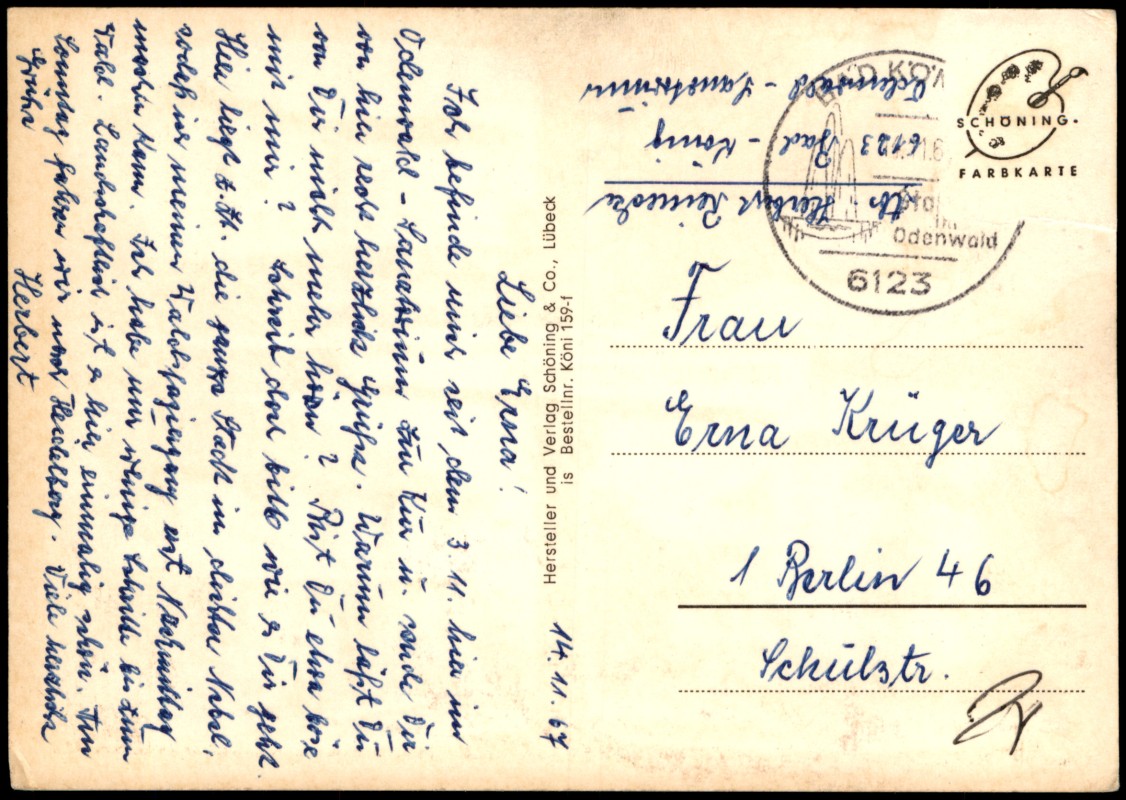 14.11.67
Liebe Erna!
Ich befinde mich seit dem 3.11. hier im
Odenwald - Sanatorium zur Kur u. sende Dir
von hier recht herzliche Grüße. Warum läßt Du
von Dir nichts mehr hören? Bist Du etwa böse
mit mir? Schreib doch bitte wie es Dir geht.
Hier liegt z.Zt. die ganze Stadt in dichten Nebel,
sodaß ich meinen Waldspaziergang erst Nachmittag
machen kann. Ich habe nur wenige Schritte bis zum
Wald. Landschaftlich ist es hier einmalig schön. Am
Sonntag fahren wir nach Heidelberg. Viele herzliche
Grüße
Herbert
Hersteller und Verlag Schöning & Co., Lübeck
is Bestellnr. Köni 159-f
Abs. Herbert
6123 Bad - König
Odenwald - Sanatorium
BAD KÖN
im
Odenwald
6123
SCHÖNING-
FARBKARTE
Frau
Erna Krüger
1 Berlin 46
Schulzstr.